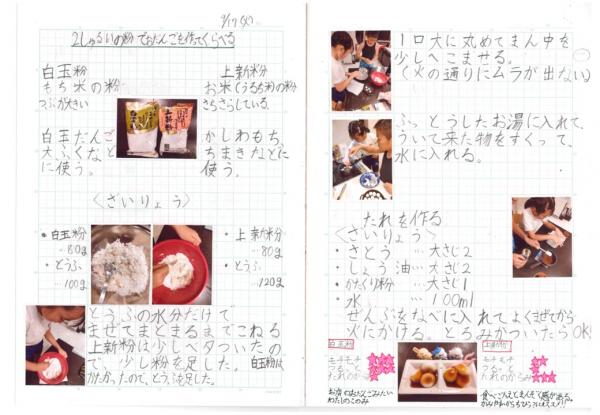 9/17(火)
2しゅるいの粉でおだんごを作ってくらべる
白玉粉
もち米の粉
つぶが大きい
白玉だんご
大ふくなど
に使う。
上新粉
お米(うるち米)の粉
さらさらしている。
かしわもち、
ちまきなどに
使う。
〈ざいりょう〉
・白玉粉
…80g
・とうふ
…100g
・上新粉
…80g
・とうふ
…120g
とうふの水分だけで
まぜてまとまるまでこねる
上新粉は少しベタついたの
で、少し粉を足した。白玉粉は
かたかったので、とうふを足した。
1口大に丸めてまん中を
少しへこませる。
(火の通りにムラが出ない)
ふっとうしたお湯に入れて、
ういて来た物をすくって、
水に入れる。
たれを作る
〈ざいりょう〉
・さとう…大さじ2
・しょう油…大さじ2
・かたくり粉…大さじ1
・水…100ml
ぜんぶをなべに入れてよくまぜてから
火にかける。とろみがついたらOK!
白玉粉
モチモチ
つるっと
たれのからみ
わたしのこのみ
上新粉
モチモチ
つるっと
たれのからみ